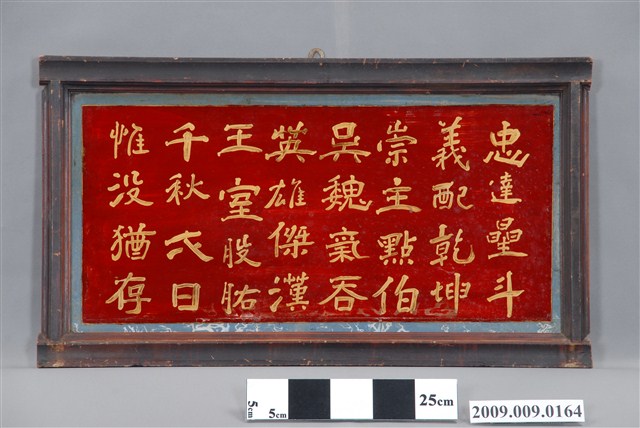 忠達曐斗
義配乾坤
崇主點伯
吳魏氣吞
英雄傑漢
王室股肱
千秋日
惟没猶存
5cm 5cm 25cm
2009.009.0164